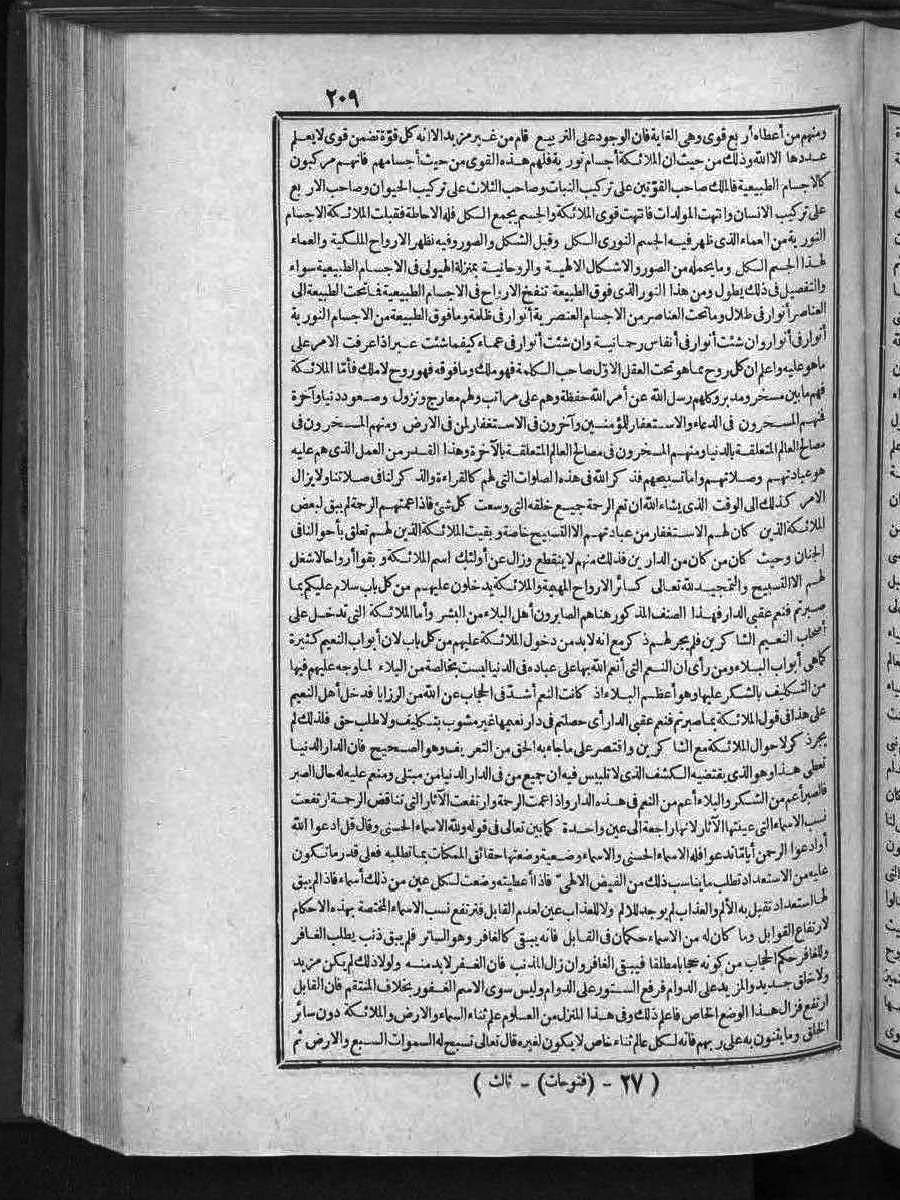 ٢٠٩
ومنهم من أعطاه أربع قوى وهى الغاية فان الوجود على التربيع قام من غير مزيد الا انه كل قوة تضمن قوى لا يعلم
عددها الا الله وذلك من حيث ان الملائكة أجسام نورية فلهم هذه القوى من حيث أجسامهم فانهم مركبون
كالاجسام الطبيعية فالملك صاحب القوتين على تركيب النبات وصاحب الثلاث على تركيب الحيوان وصاحب الاربع
على تركيب الانسان وانتهت المولدات فانتهت قوى الملائكة والجسم يجمع الكل فله الاحاطة فقبلت الملائكة الاجسام
النورية من العماء الذى ظهر فيه الجسم النورى الكل وقبل الشكل والصور وفيه تظهر الارواح الملكية والعماء
لهذا الجسم الكل وما يحمله من الصور والاشكال الالهية والروحانية بمنزلة الهيولى فى الاجسام الطبيعية سواء
والتفصيل فى ذلك يطول ومن هذا النور الذى فوق الطبيعة تنفخ الارواح فى الاجسام الطبيعية فما تحت الطبيعة الى
العناصر أنوار فى ظلال وما تحت العناصر من الاجسام العنصرية أنوار فى ظلمة وما فوق الطبيعة من الاجسام النورية
أنوار فى أنوار وان شئت أنوار فى أنفاس رحمانية وان شئت أنوار فى عماء كيفما شئت عبر اذا عرفت الامر على
ما هو عليه واعلم ان كل روح مما هو تحت العقل الاول صاحب الكلمة فهو ملك وما فوقه فهو روح لا ملك فأما الملائكة
فهم ما بين مسخر ومدبر وكلهم رسل الله عن أمر الله حفظة وهم على مراتب ولهم معارج ونزول وصعود دنيا وآخرة
فمنهم المسخرون فى الدعاء والاستغفار للمؤمنين وآخرون فى الاستغفار لمن فى الارض ومنهم المسخرون فى
مصالح العالم المتعلقة بالدنيا ومنهم المسخرون فى مصالح العالم المتعلقة بالآخرة وهذا القدر من العمل الذى هم عليه
هو عبادتهم وصلاتهم وأما تسبيحهم فذكر الله فى هذه الصلوات التى لهم كالقراءة والذكر لنا فى صلاتنا ولا يزال
الامر كذلك الى الوقت الذى يشاء الله ان تعم الرحمة جميع خلقه التى وسعت كل شئ فاذا عمتهم الرحمة لم يبق لبعض
الملائكة الذين كان لهم الاستغفار من عبادتهم الا التسبيح خاصة وبقيت الملائكة الذين لهم تعلق بأحوالنا فى
الجنان وحيث كان من كان من الدارين فذلك منهم لا ينقطع وزال عن أولئك اسم الملائكة وبقوا أرواحا لا شغل
لهم الا التسبيح والتمجيد لله تعالى كسائر الارواح المهيمة والملائكة يدخلون عليهم من كل باب سلام عليكم بما
صبرتم فنعم عقبى الدار فهذا الصنف المذكور هنا هم الصابرون أهل البلاء من البشر وأما الملائكة التى تدخل على
أصحاب النعيم الشاكرين فلم يجر لهم ذكر مع انه لا بد من دخول الملائكة عليهم من كل باب لان أبواب النعيم كثيرة
كما هى أبواب البلاء ومن رأى ان النعم التى أنعم الله بها على عباده فى الدنيا ليست بخالصة من البلاء لما وجه عليهم فيها
من التكليف بالشكر عليها وهو أعظم البلاء اذ كانت النعم أشد فى الحجاب عن الله من الرزايا فدخل أهل النعيم
على هذا فى قول الملائكة بما صبرتم فنعم عقبى الدار أى حصلتم فى دار نعيمها غير مشوب بتكليف ولا طلب حق فلذلك لم
يجر ذكر لاحوال الملائكة مع الشاكرين واقتصر على ما جاء به الحق من التعريف وهو الصحيح فان الدار الدنيا
تعطى هذا وهو الذى يقتضيه الكشف الذى لا تلبيس فيه ان جميع من فى الدار الدنيا من مبتلى ومنعم عليه له حال الصبر
فالصبر أعم من الشكر والبلاء أعم من النعم فى هذه الدار واذا عمت الرحمة وارتفعت الآثار التى تناقض الرحمة ارتفعت
نسب الاسماء التى عينتها الآثار لانها راجعة الى عين واحدة كما بين تعالى فى قوله ولله الاسماء الحسنى وقال قل ادعوا الله
أو ادعوا الرحمن أياما تدعوا فله الاسماء الحسنى والاسماء وضعية وضعتها حقائق الممكنات بما تطلبه فعلى قدر ما تكون
عليه من الاستعداد تطلب ما يناسب ذلك من الفيض الالهى فاذا أعطيته وضعت لكل عين من ذلك أسماء فاذا لم يبق
لها استعداد تقبل به الألم والعذاب لم يوجد للالم ولا للعذاب عين لعدم القابل فترتفع نسب الاسماء المختصة بهذه الاحكام
لارتفاع القوابل وما كان له من الاسماء حكمان فى القابل فانه يبقى كالغافر وهو الساتر فلم يبق ذنب يطلب الغافر
وللغافر حكم الحجاب من كونه حجابا مطلقا فيبقى الغافر وان زال المذنب فان الغفر لا بد منه ولولا ذلك لم يكن مزيد
ولا خلق جديد والمزيد على الدوام فرفع الستور على الدوام وليس سوى الاسم الغفور بخلاف المنتقم فان القابل
ارتفع فزال هذا الوضع الخاص فاعلم ذلك وفى هذا المنزل من العلوم علم ثناء السماء والارض والملائكة دون سائر
الخلق وما يثنون به على ربهم فانه لكل عالم ثناء خاص لا يكون لغيره قال تعالى تسبح له السموات السبع والارض ثم
( ٢٧ - (فتوحات) - ثالث )